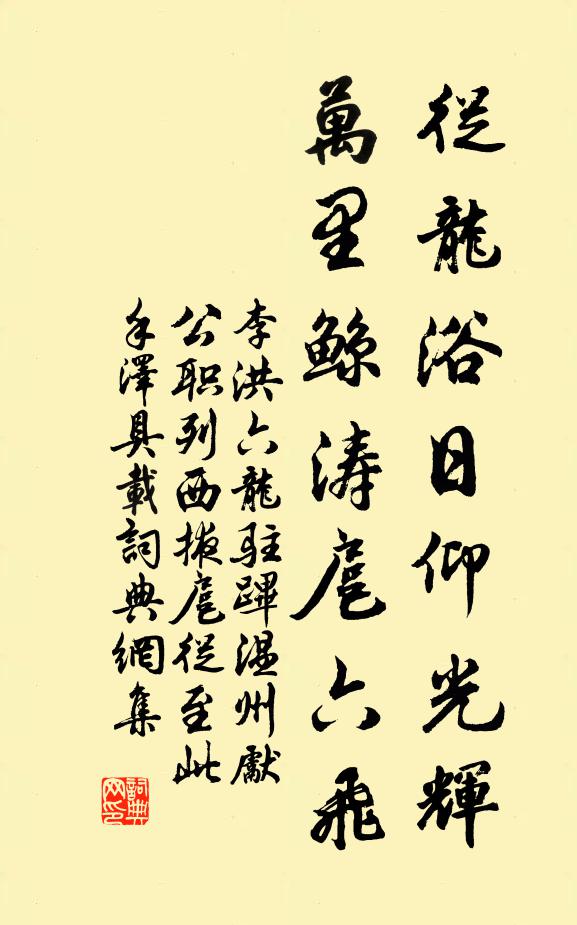 從龍浴日仰光輝
萬里鯨濤扈六飛
李洪六龍駐蹕温州獻
公职列西掖扈從至此
手澤具載詞典網集
詞典網印